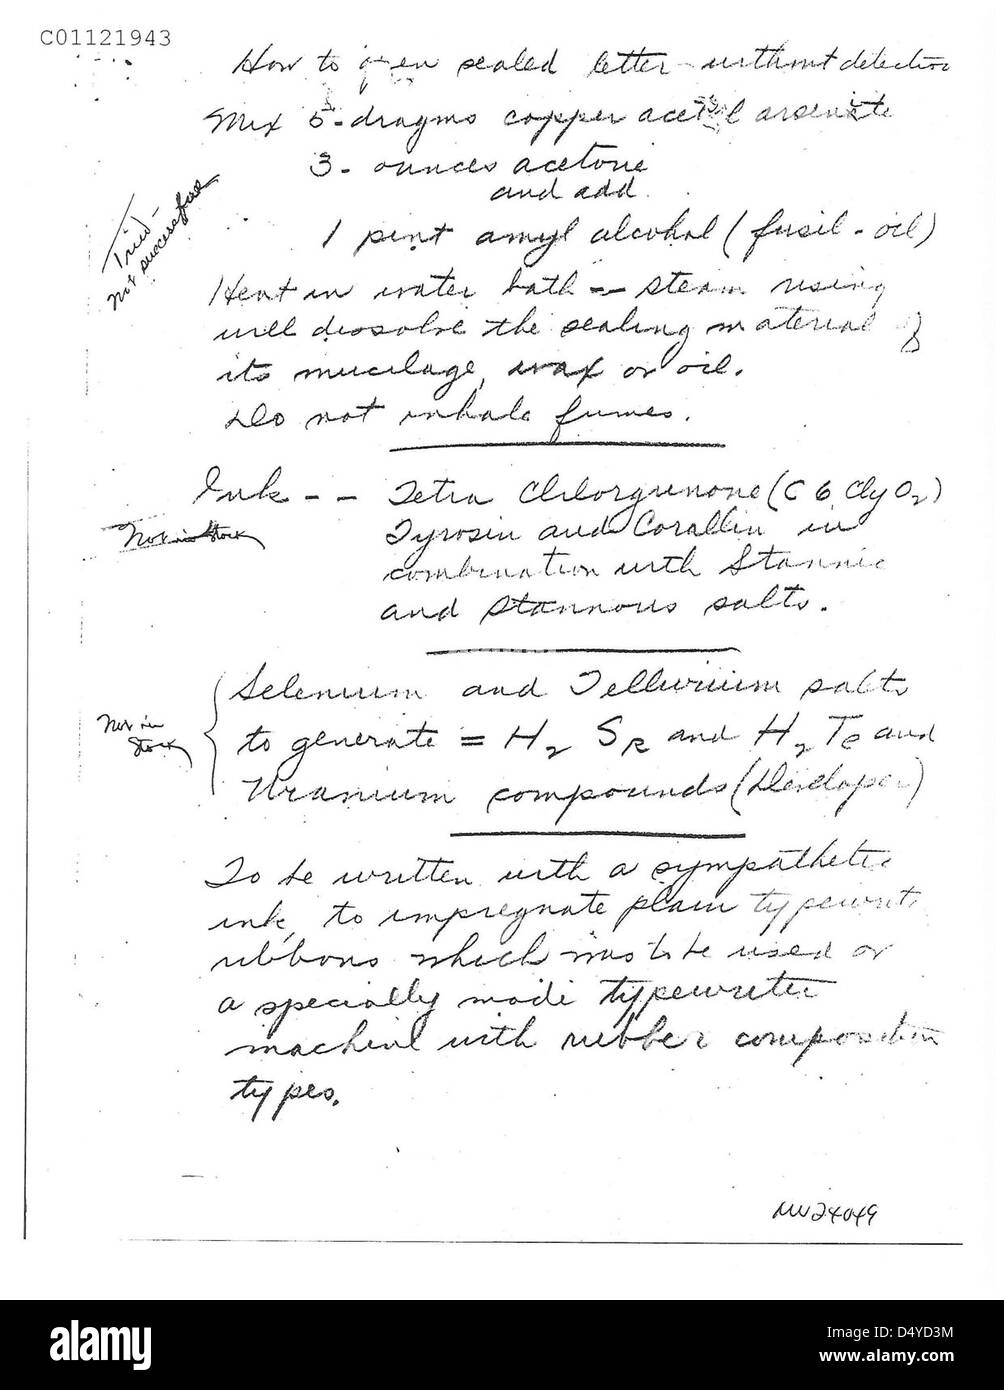 C01121943
How to open sealed letter without detection
Mix 5-dragms copper acetyl arsenite
3- ounces acetone
and add
1 pint amyl alcohol (fusil-oil)
Tried -
not successful
Heat in water bath -- steam rising
will dissolve the sealing material of
its mucilage, wax or oil.
Do not inhale fumes.
Ink -- Tetra Chlorgunone (C 6 Cly O2)
Not in Stock
Tyrosin and Corallin in
combination with Stannic
and Stannous salts.
Selenium and Tellurium salts
Not in
Stock
to generate = H2 Se and H2 Te and
Uranium compounds (Developer)
To be written with a sympathetic
ink, to impregnate plain typewrit
ribbons which was to be used or
a specially made typewriter
machine with rubber composition
types.
NW24049
alamy
Image ID: D4YD3M
www.alamy.com